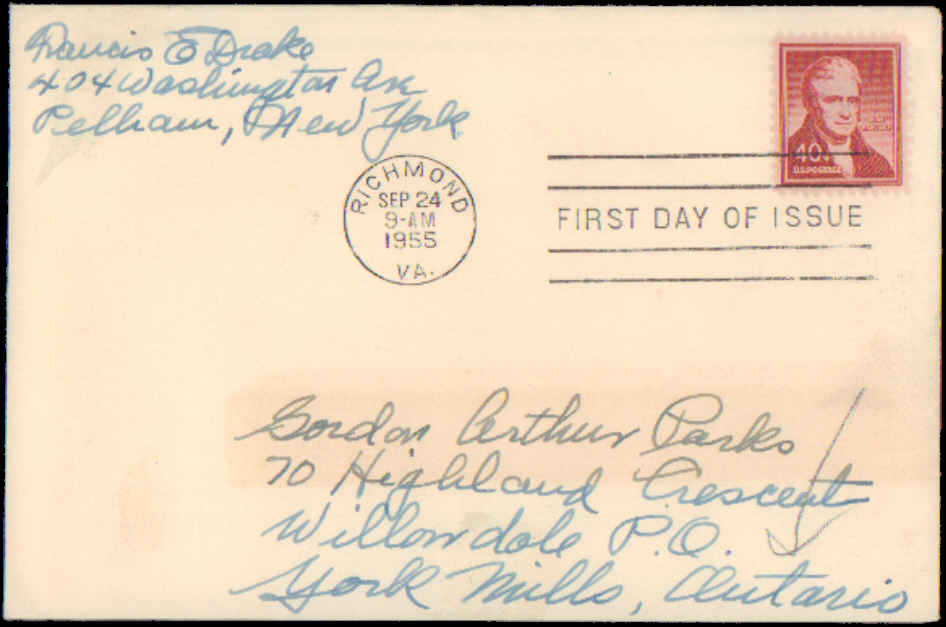 Francis E Drake
404 Washington Ave
Pelham, New York
RICHMOND
SEP 24
9-AM
1955
VA.
40¢
U.S. POSTAGE
FIRST DAY OF ISSUE
Gordon Arthur Parks
70 Highland Crescent
Willowdale P.O.
York Mills, Ontario